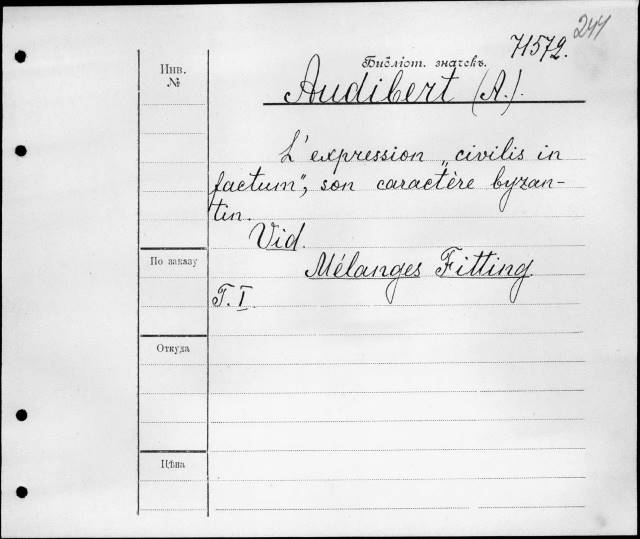 244
71572.
Инв. №
Библіот. значекъ.
Audibert (A.).
L'expression „civilis in
factum", son caractère byzan-
tin.
Vid.
Mélanges Fitting
T. I
По заказу
Откуда
Цѣна